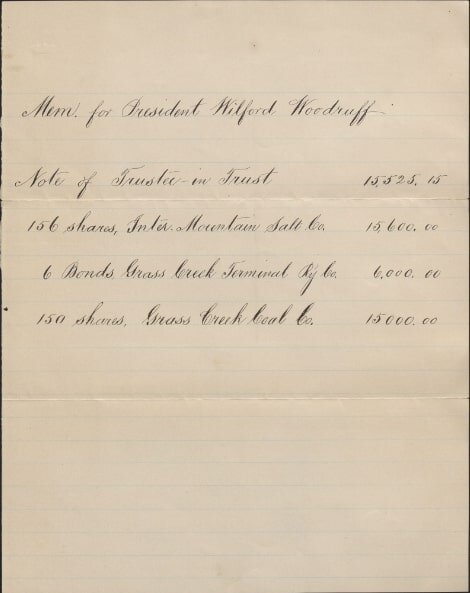 Mem. for President Wilford Woodruff
Note of Trustee-in Trust 15,525.15
156 shares, Inter. Mountain Salt Co. 15,600.00
6 Bonds, Grass Creek Terminal Ry Co. 6,000.00
150 shares, Grass Creek Coal Co. 15000.00